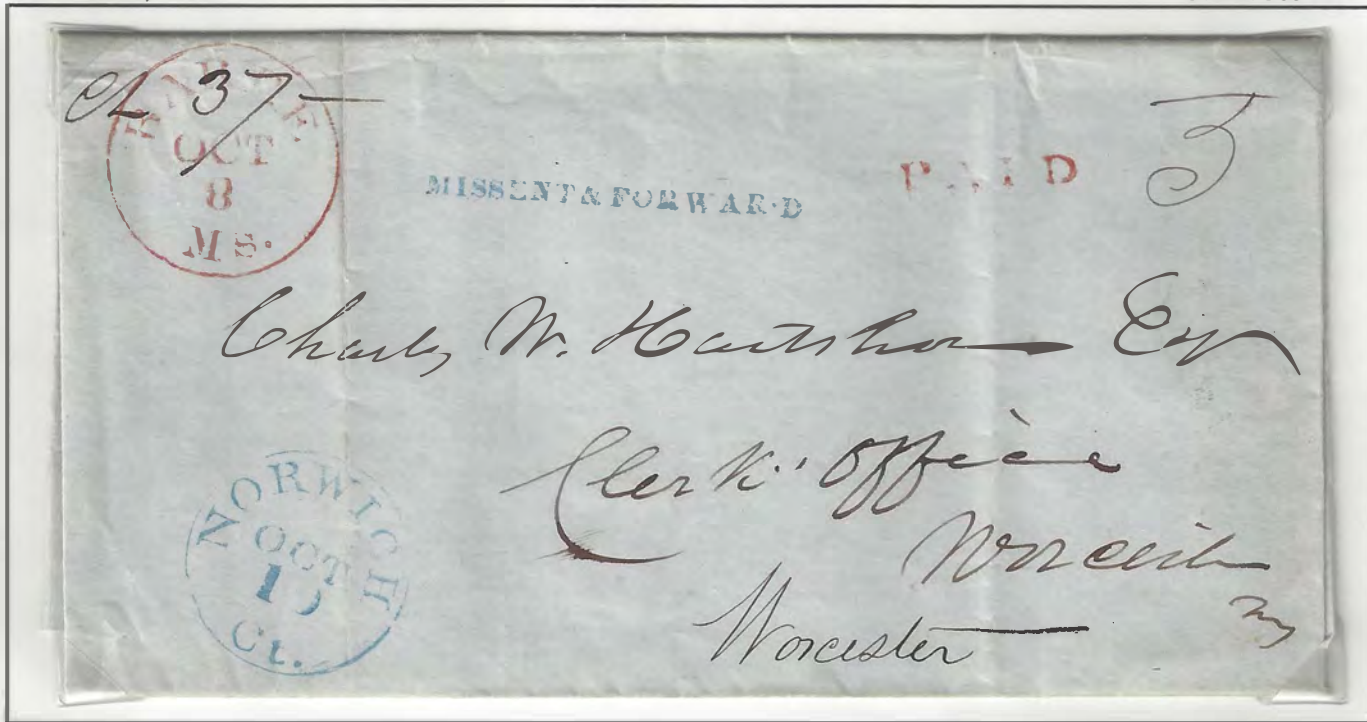 Ch 37
OCT
8
MS.
MISSENT & FORWAR·D
PAID 3
Charles W. Hartshorn Esq
Clerk's Office
Worcester
Worcester
NORWICH
OCT
Ct.